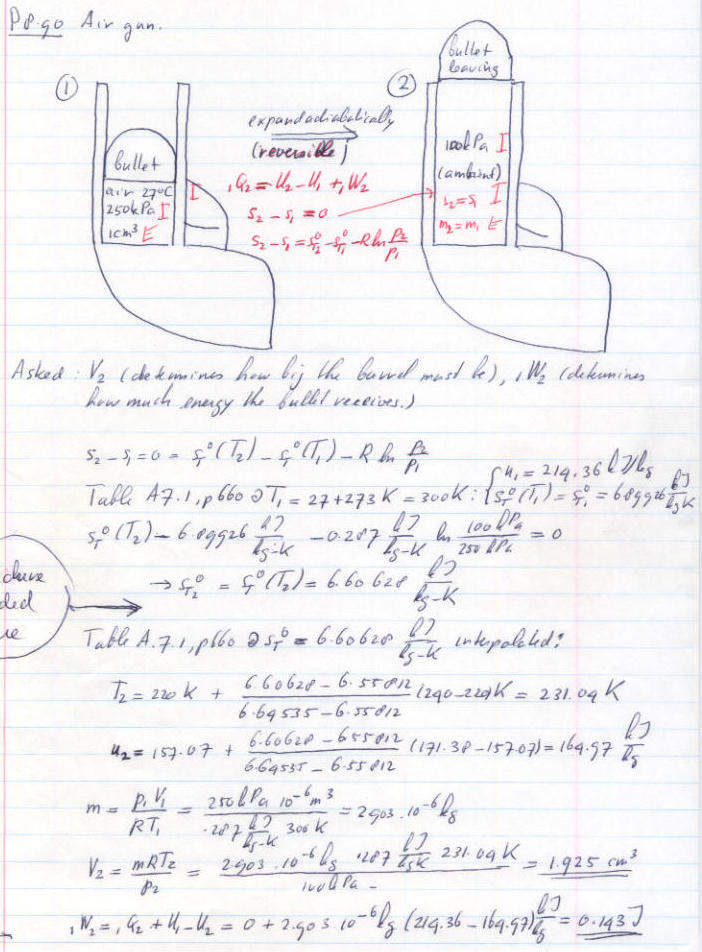 P8.90 Air gun.
①
bullet
air 27°C
250kPa I
1cm³ E
I
expand adiabatically
(reversible)
₁Q₂ = U₂ - U₁ + ₁W₂
s₂ - s₁ = 0
s₂ - s₁ = s°T₂ - s°T₁ - R ln P₂/P₁
②
bullet
leaving
100kPa I
(ambient)
s₂ = s₁ I
m₂ = m₁ E
Asked: V₂ (determines how big the barrel must be), ₁W₂ (determines
how much energy the bullet receives.)
s₂ - s₁ = 0 = s°T(T₂) - s°T(T₁) - R ln P₂/P₁
Table A7.1, p660 @ T₁ = 27+273 K = 300K: { u₁ = 214.36 kJ/kg
s°T(T₁) = s°T₁ = 6.89926 kJ/kg-K
s°T(T₂) - 6.89926 kJ/kg-K - 0.287 kJ/kg-K ln 100 kPa/250 kPa = 0
→ s°T₂ = s°T(T₂) = 6.60628 kJ/kg-K
ded
Table A.7.1, p660 @ s°T = 6.60628 kJ/kg-K interpolated:
T₂ = 220 K + (6.60628 - 6.55812)/(6.64535 - 6.55812) (240-220)K = 231.04 K
u₂ = 157.07 + (6.60628 - 6.55812)/(6.64535 - 6.55812) (171.38 - 157.07) = 164.97 kJ/kg
m = P₁V₁/RT₁ = 250 kPa 10⁻⁶ m³/.287 kJ/kg-K 300 K = 2.903 . 10⁻⁶ kg
V₂ = mRT₂/P₂ = 2.903 . 10⁻⁶ kg .287 kJ/kgK 231.04 K/100 kPa = 1.925 cm³
₁W₂ = ₁Q₂ + U₁ - U₂ = 0 + 2.903 . 10⁻⁶ kg (214.36 - 164.97) kJ/kg = 0.143 J